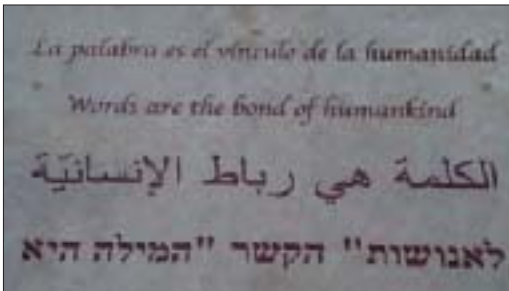 La palabra es el vínculo de la humanidad
Words are the bond of humankind
الكلمة هي رباط الإنسانيّة
לאנושות" הקשר "המילה היא